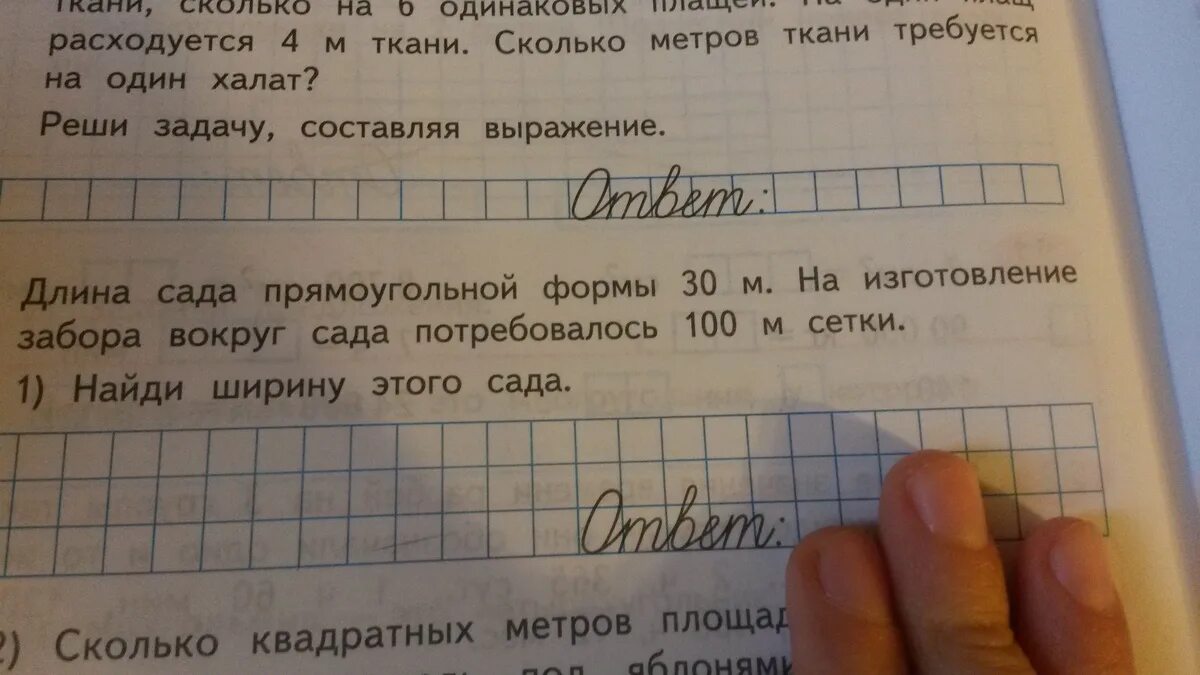 ткани, сколько на 6 одинаковых плащей. На один плащ
расходуется 4 м ткани. Сколько метров ткани требуется
на один халат?
Реши задачу, составляя выражение.
Ответ:
Длина сада прямоугольной формы 30 м. На изготовление
забора вокруг сада потребовалось 100 м сетки.
1) Найди ширину этого сада.
Ответ:
2) Сколько квадратных метров площад
под яблонями